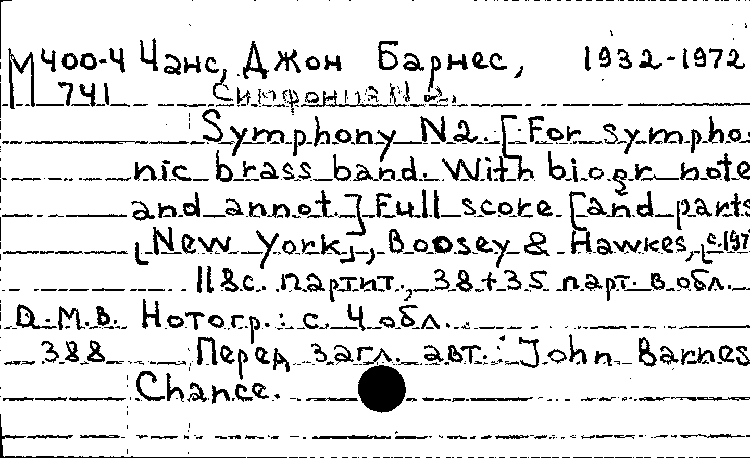 М 400-4 Чанс, Джон Барнес, 1932-1972
741 Симфония N 2.
Symphony N2. [For sympho-
nic brass band. With biogr note
and annot.] Full score [and parts
[New York], Boosey & Hawkes, [c.197
118с. партит., 38+35 парт. в обл.
D.M.B. Нотогр.: с. 4 обл.
388 Перед загл. авт.: John Barnes
Chance.